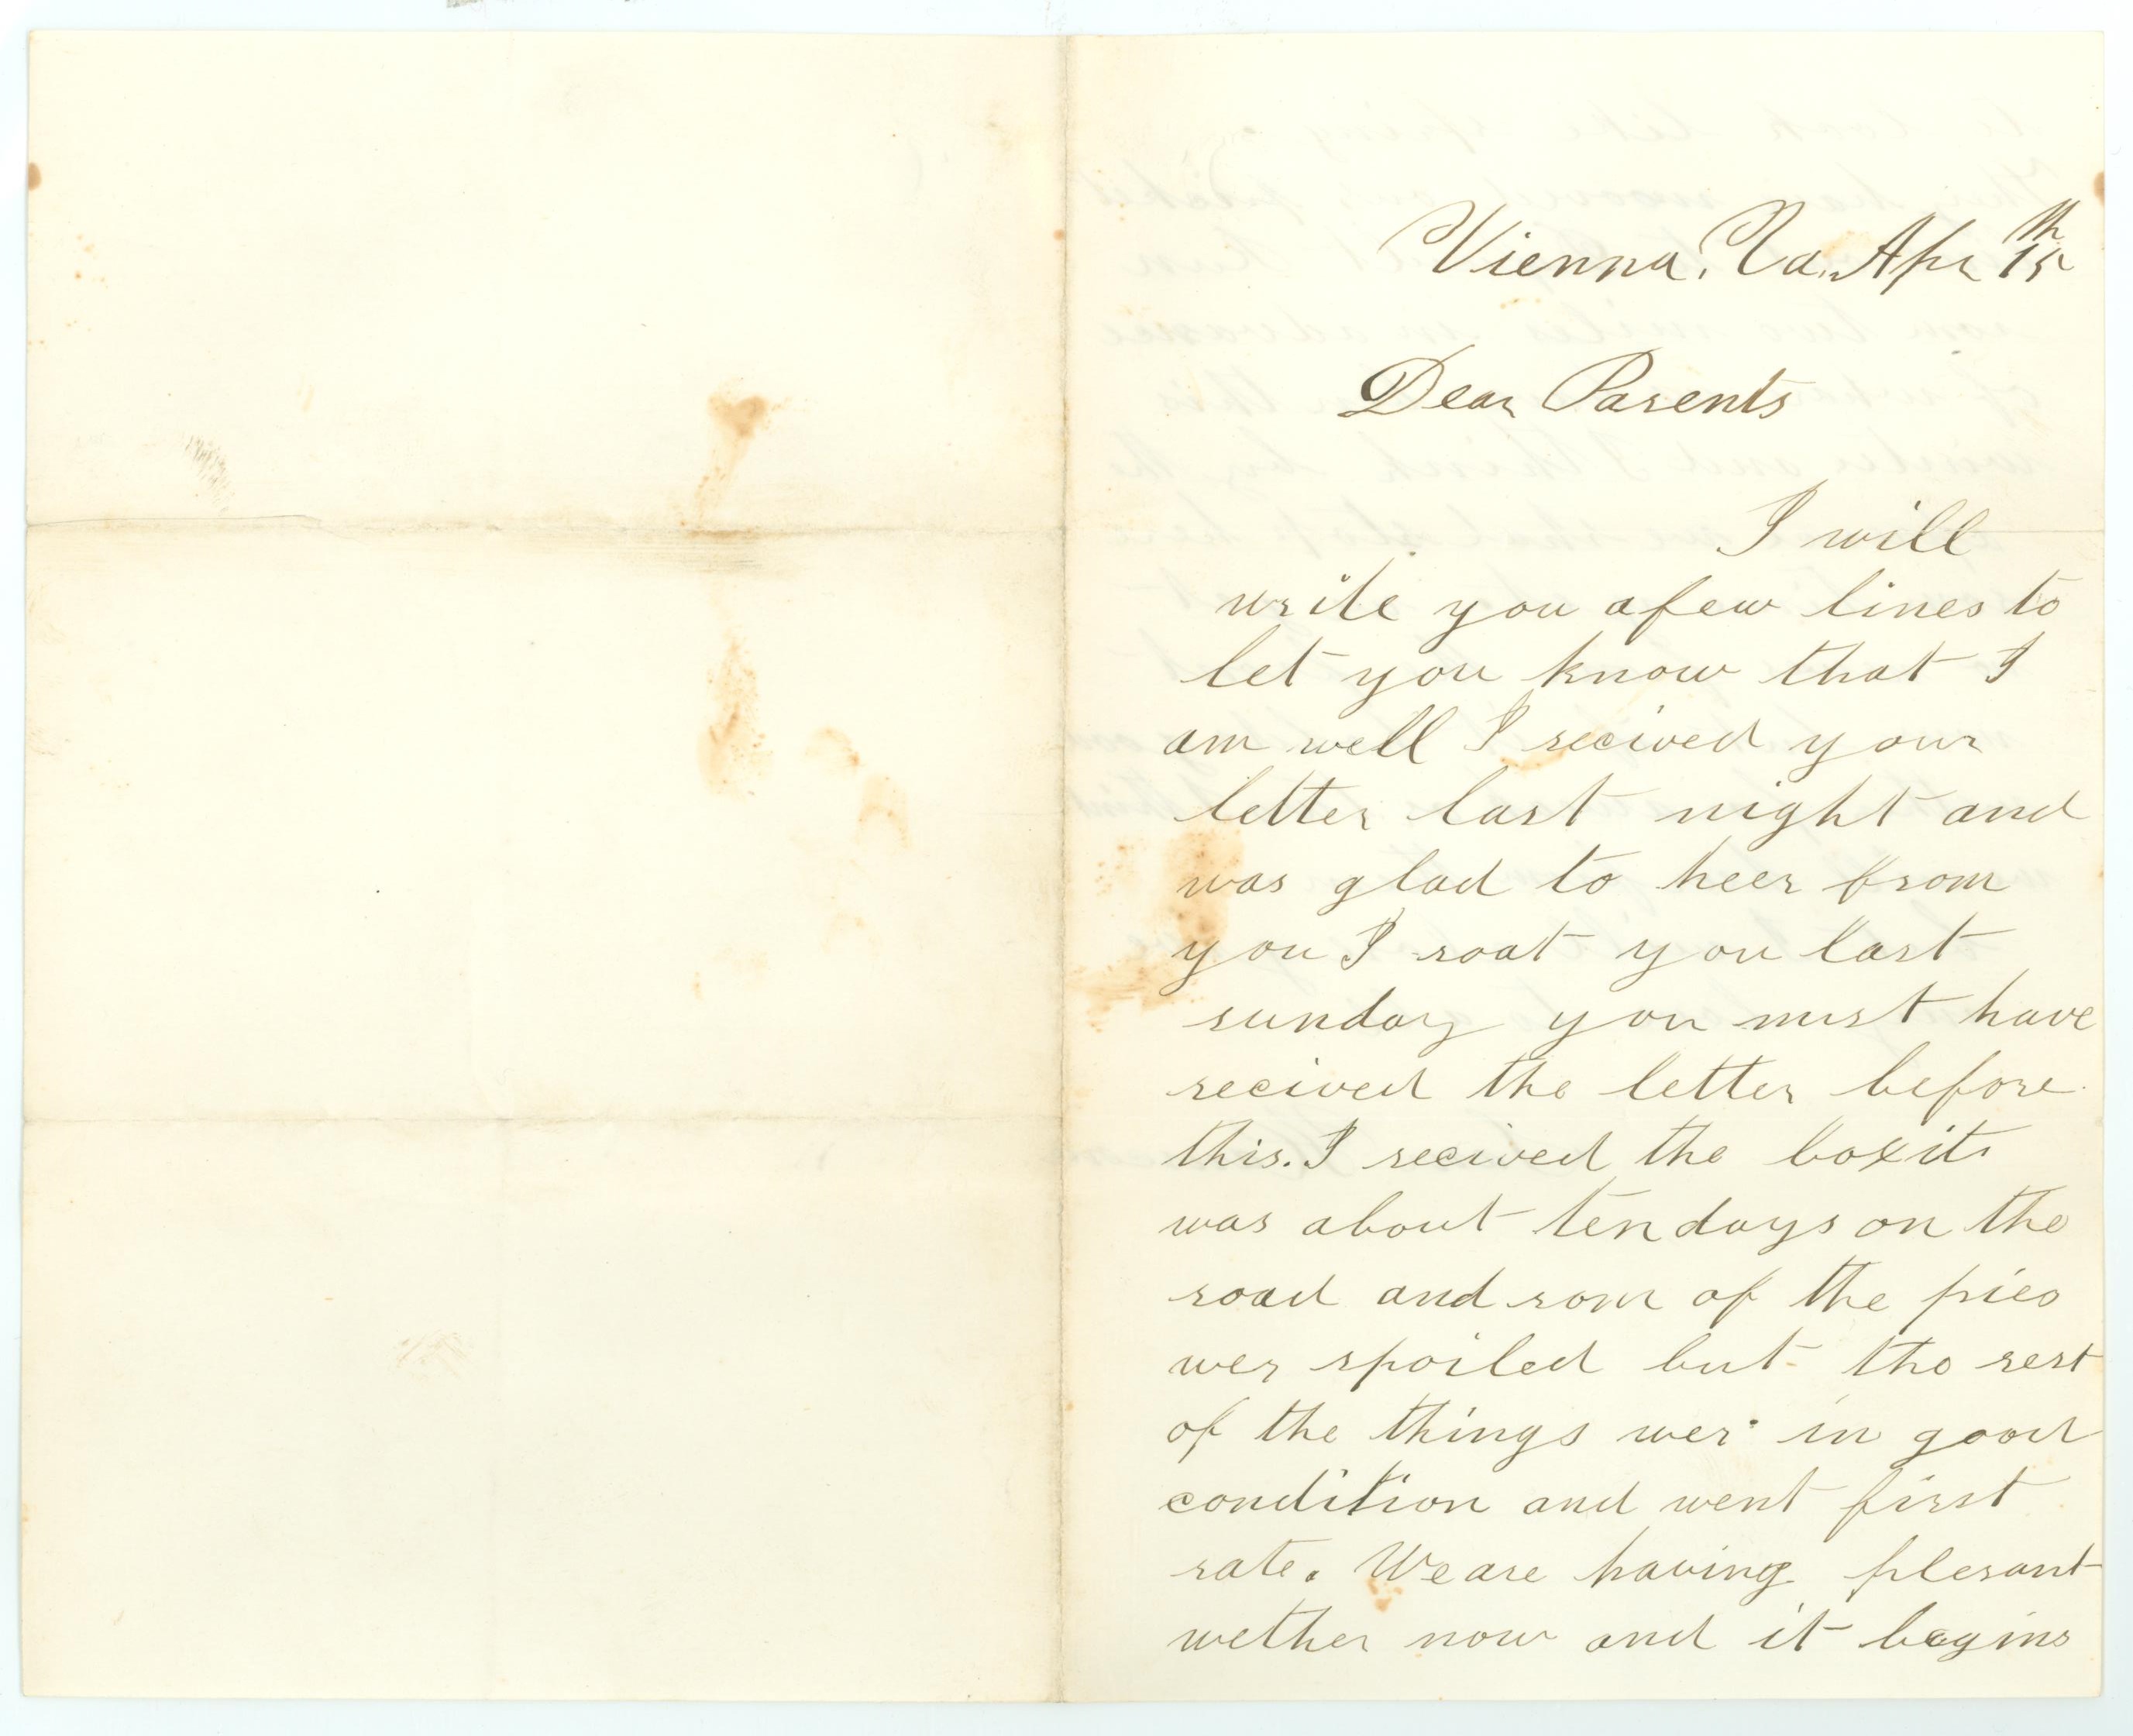 Vienna, Va. Apr 15th
Dear Parents
I will
write you afew lines to
let you know that I
am well I recived your
letter last night and
was glad to heer from
you I roat you last
sunday you must have
recived the letter before
this. I recived the box it
was about ten days on the
road and som of the pies
wer spoiled but the rest
of the things wer in good
condition and went first
rate. We are having plesant
wether now and it begins